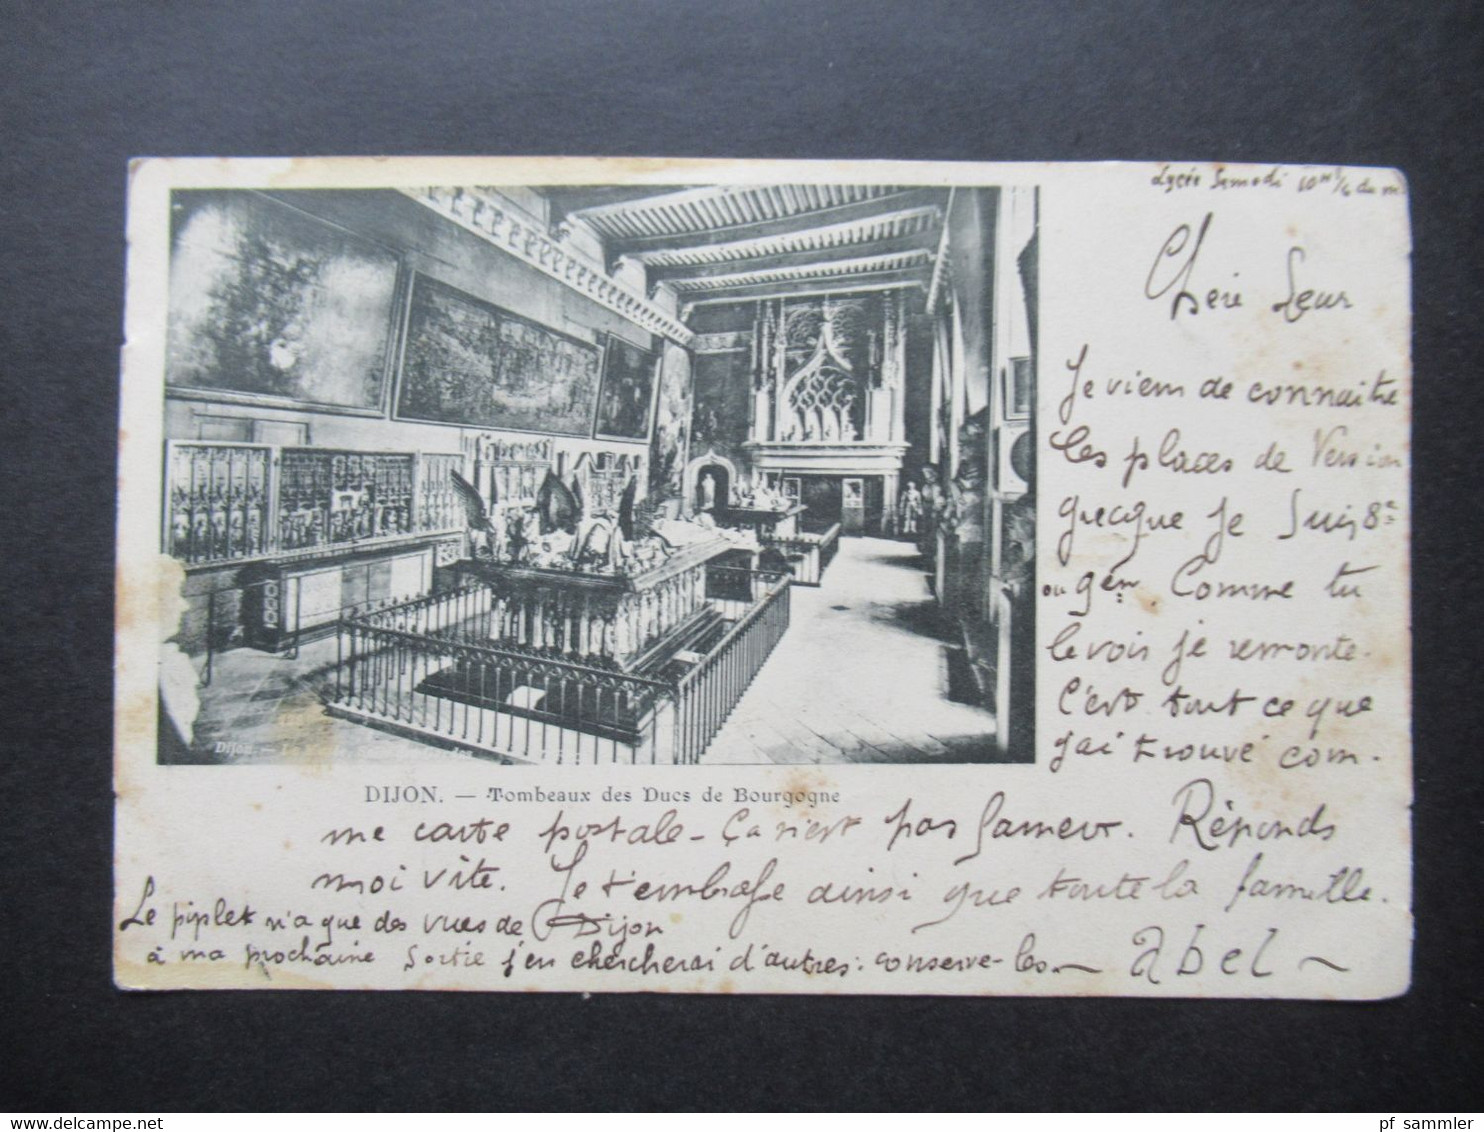 Lycée Samedi 10H 1/4 du m.
Chère Sœur
Je viens de connaître
les places de Version
grecque je suis 8e
ou 9èm. Comme tu
le vois je remonte.
C'est tout ce que
j'ai trouvé com-
Dijon. —
DIJON. — Tombeaux des Ducs de Bourgogne
me carte postale - Ça n'est pas fameux. Réponds
moi vite. Je t'embrasse ainsi que toute la famille.
Le piplet n'a que des vues de Dijon
à ma prochaine sortie j'en chercherai d'autres : conserve-les — Abel —
pf_sammler